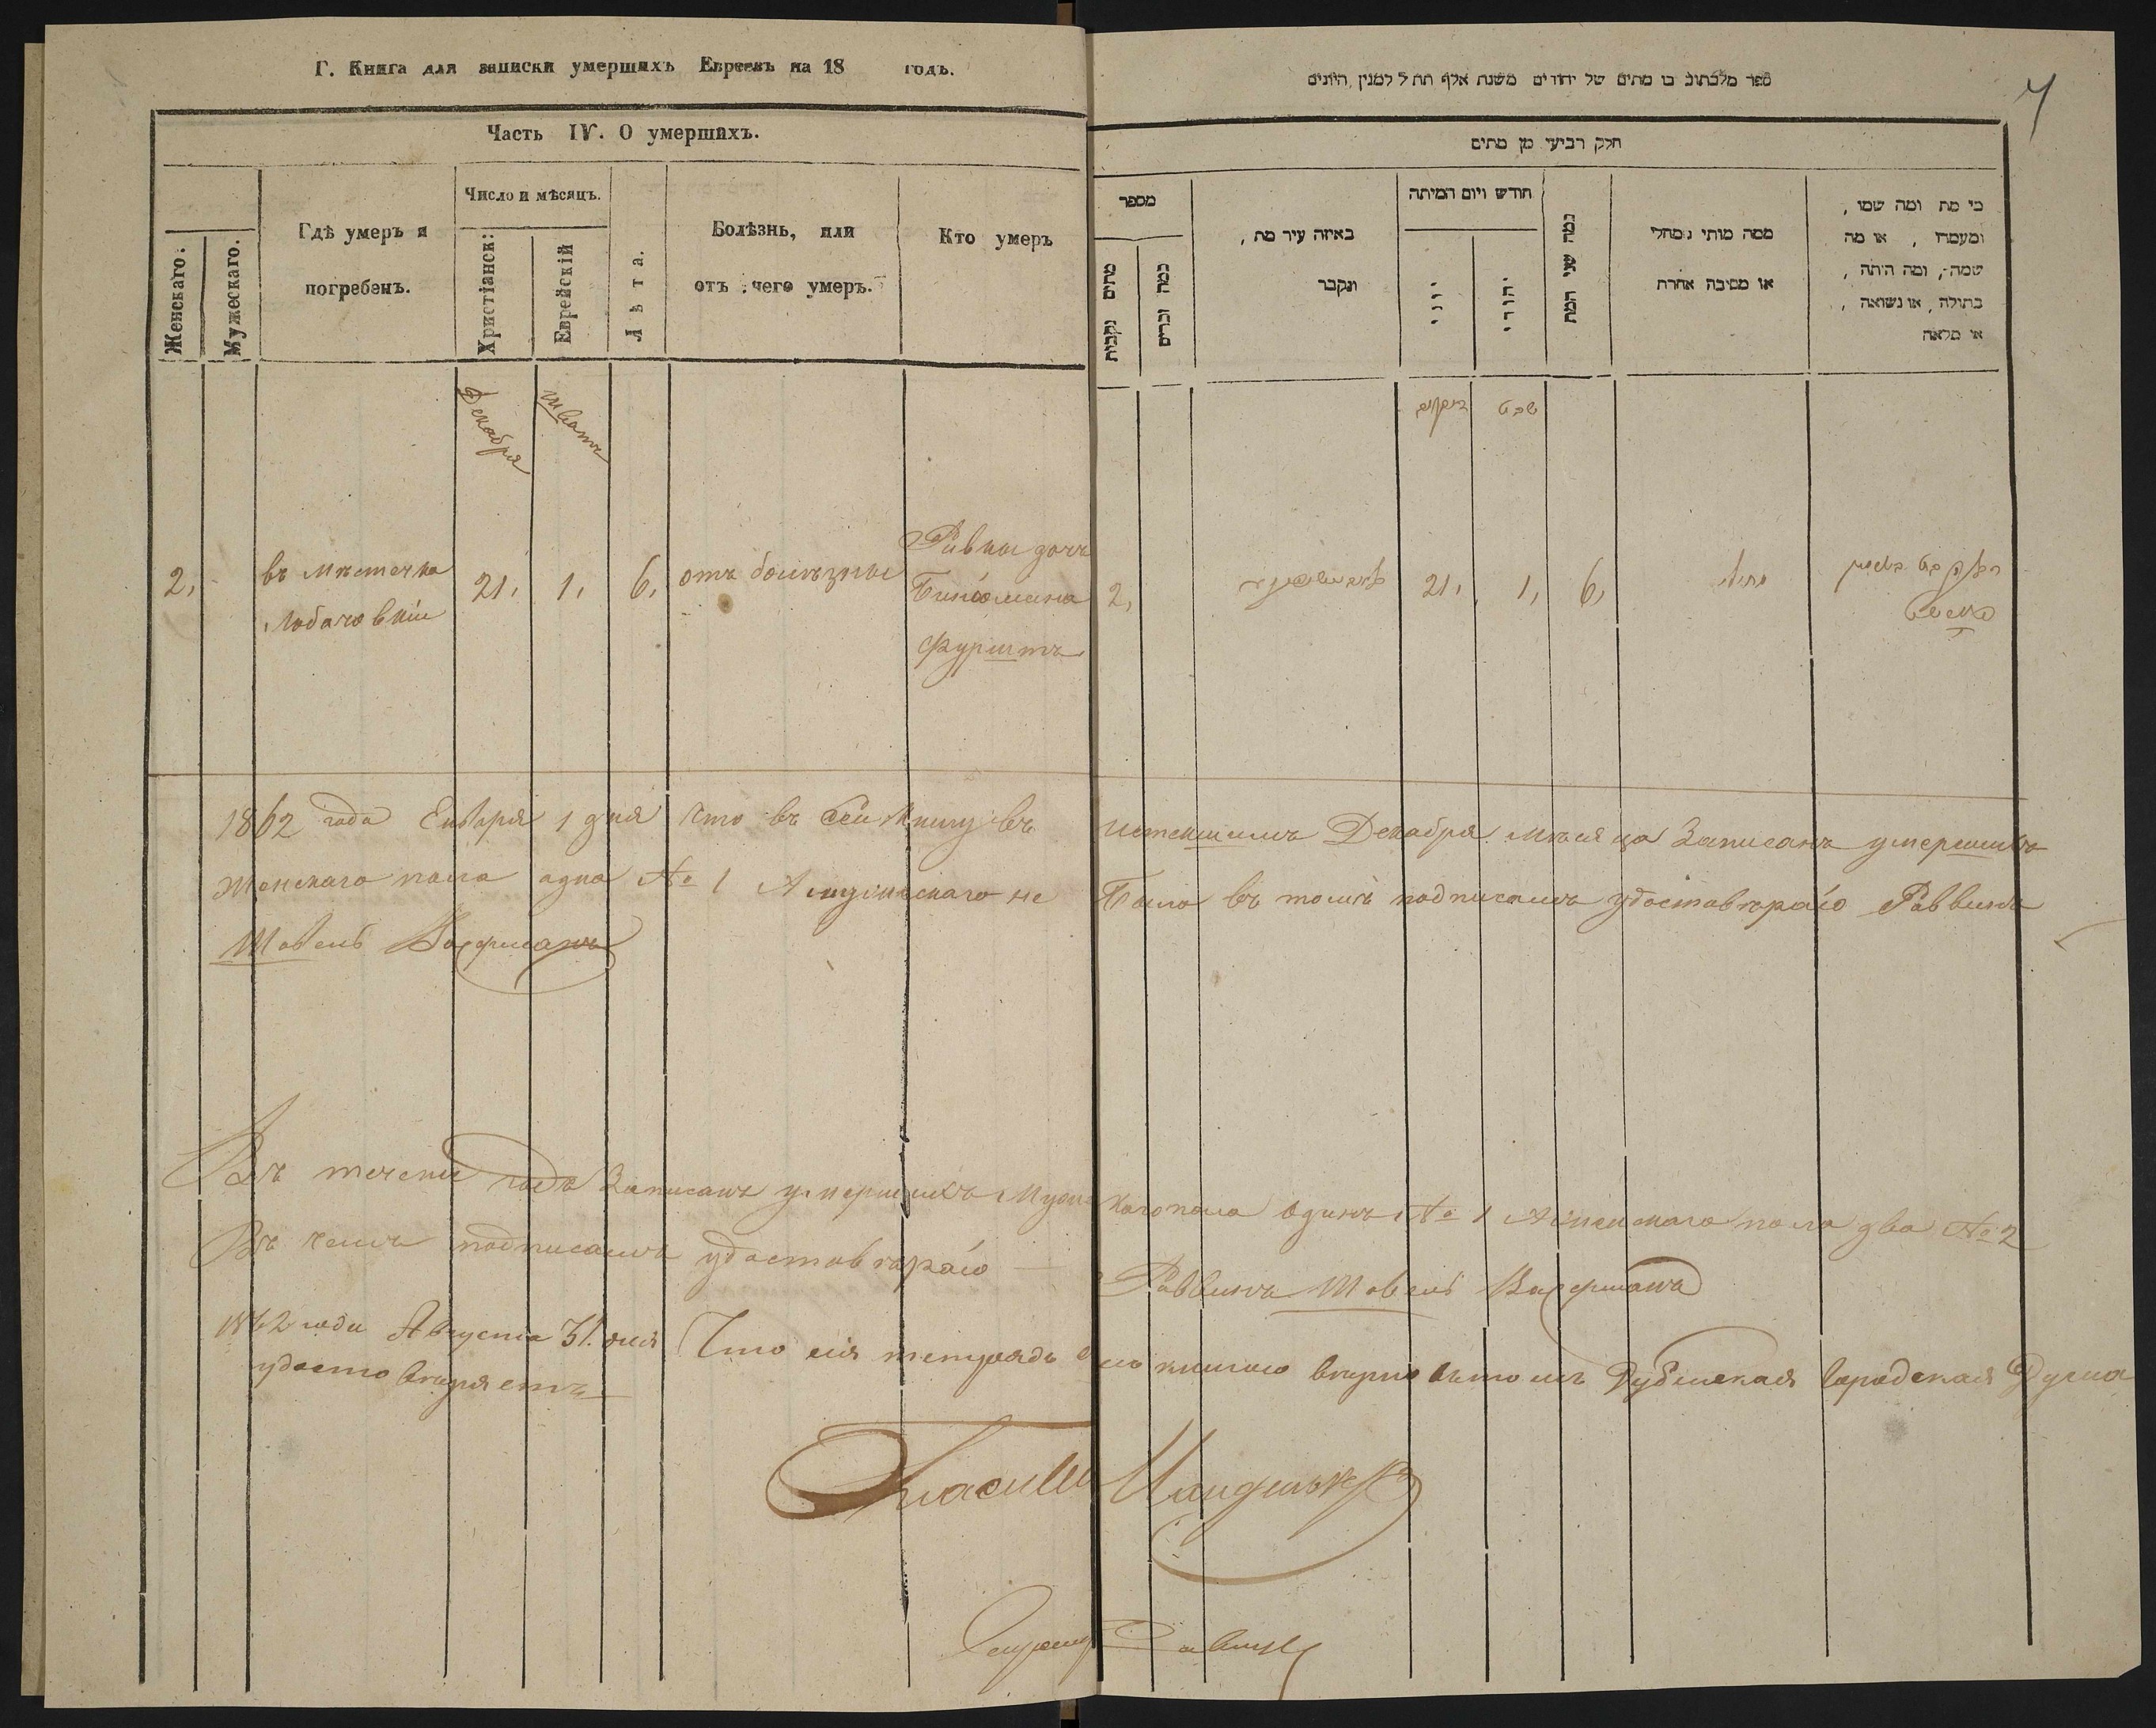 Г. Книга для записки умершихъ Евреевъ на 18 годъ.
Часть IV. О умершихъ.
Женскаго:
Мужескаго.
Гдѣ умеръ и
погребенъ.
Число и мѣсяцъ.
Христіанск:
Еврейскій
Лѣта.
Болѣзнь, или
отъ чего умеръ.
Кто умеръ
Декабря
шватъ
2,
въ мѣстечка
21,
1,
6,
отъ болѣзные
Ривка дочъ
Биніомина
Фурштъ
ספר מלכתוב בו מתים של יהודים משנת אלף תת"ל למנין היונים
7
חלק רביעי מן מתים
מספר
מתים נקבית
כמה זכרים
באיזה עיר מת,
ונקבר
חודש ויום המיתה
יוני
יהודי
כמה שני המת
ממה מותי ומחלי
או מסיבה אחרת
כי מת ומה שמו,
ומעמדו, או מה
שמה, ומה היתה,
בתולה, או נשואה,
או מלאה
שבט
2,
21,
1,
6,
1862 года Енваря 1 дня что въ сеи книгу въ истекшимъ Декабря мѣсяца Записанъ умершихъ
Женскаго пола одна № 1 А мужескаго не было въ томъ подписомъ удостовѣраіо Раввинъ
Шовель Васерманъ
Въ течение года Записанъ умершихъ Мужескаго пола одинъ № 1 Аженскаго пола два № 2
Въ чемъ подписомъ удостовѣраіо — Раввинъ Шовель Васерманъ
1862 года Августа 31 дня Что сія тетрадь съ книгою вѣрна въ томъ Дубенская Городская Дума
удостовѣряетъ
Гласный